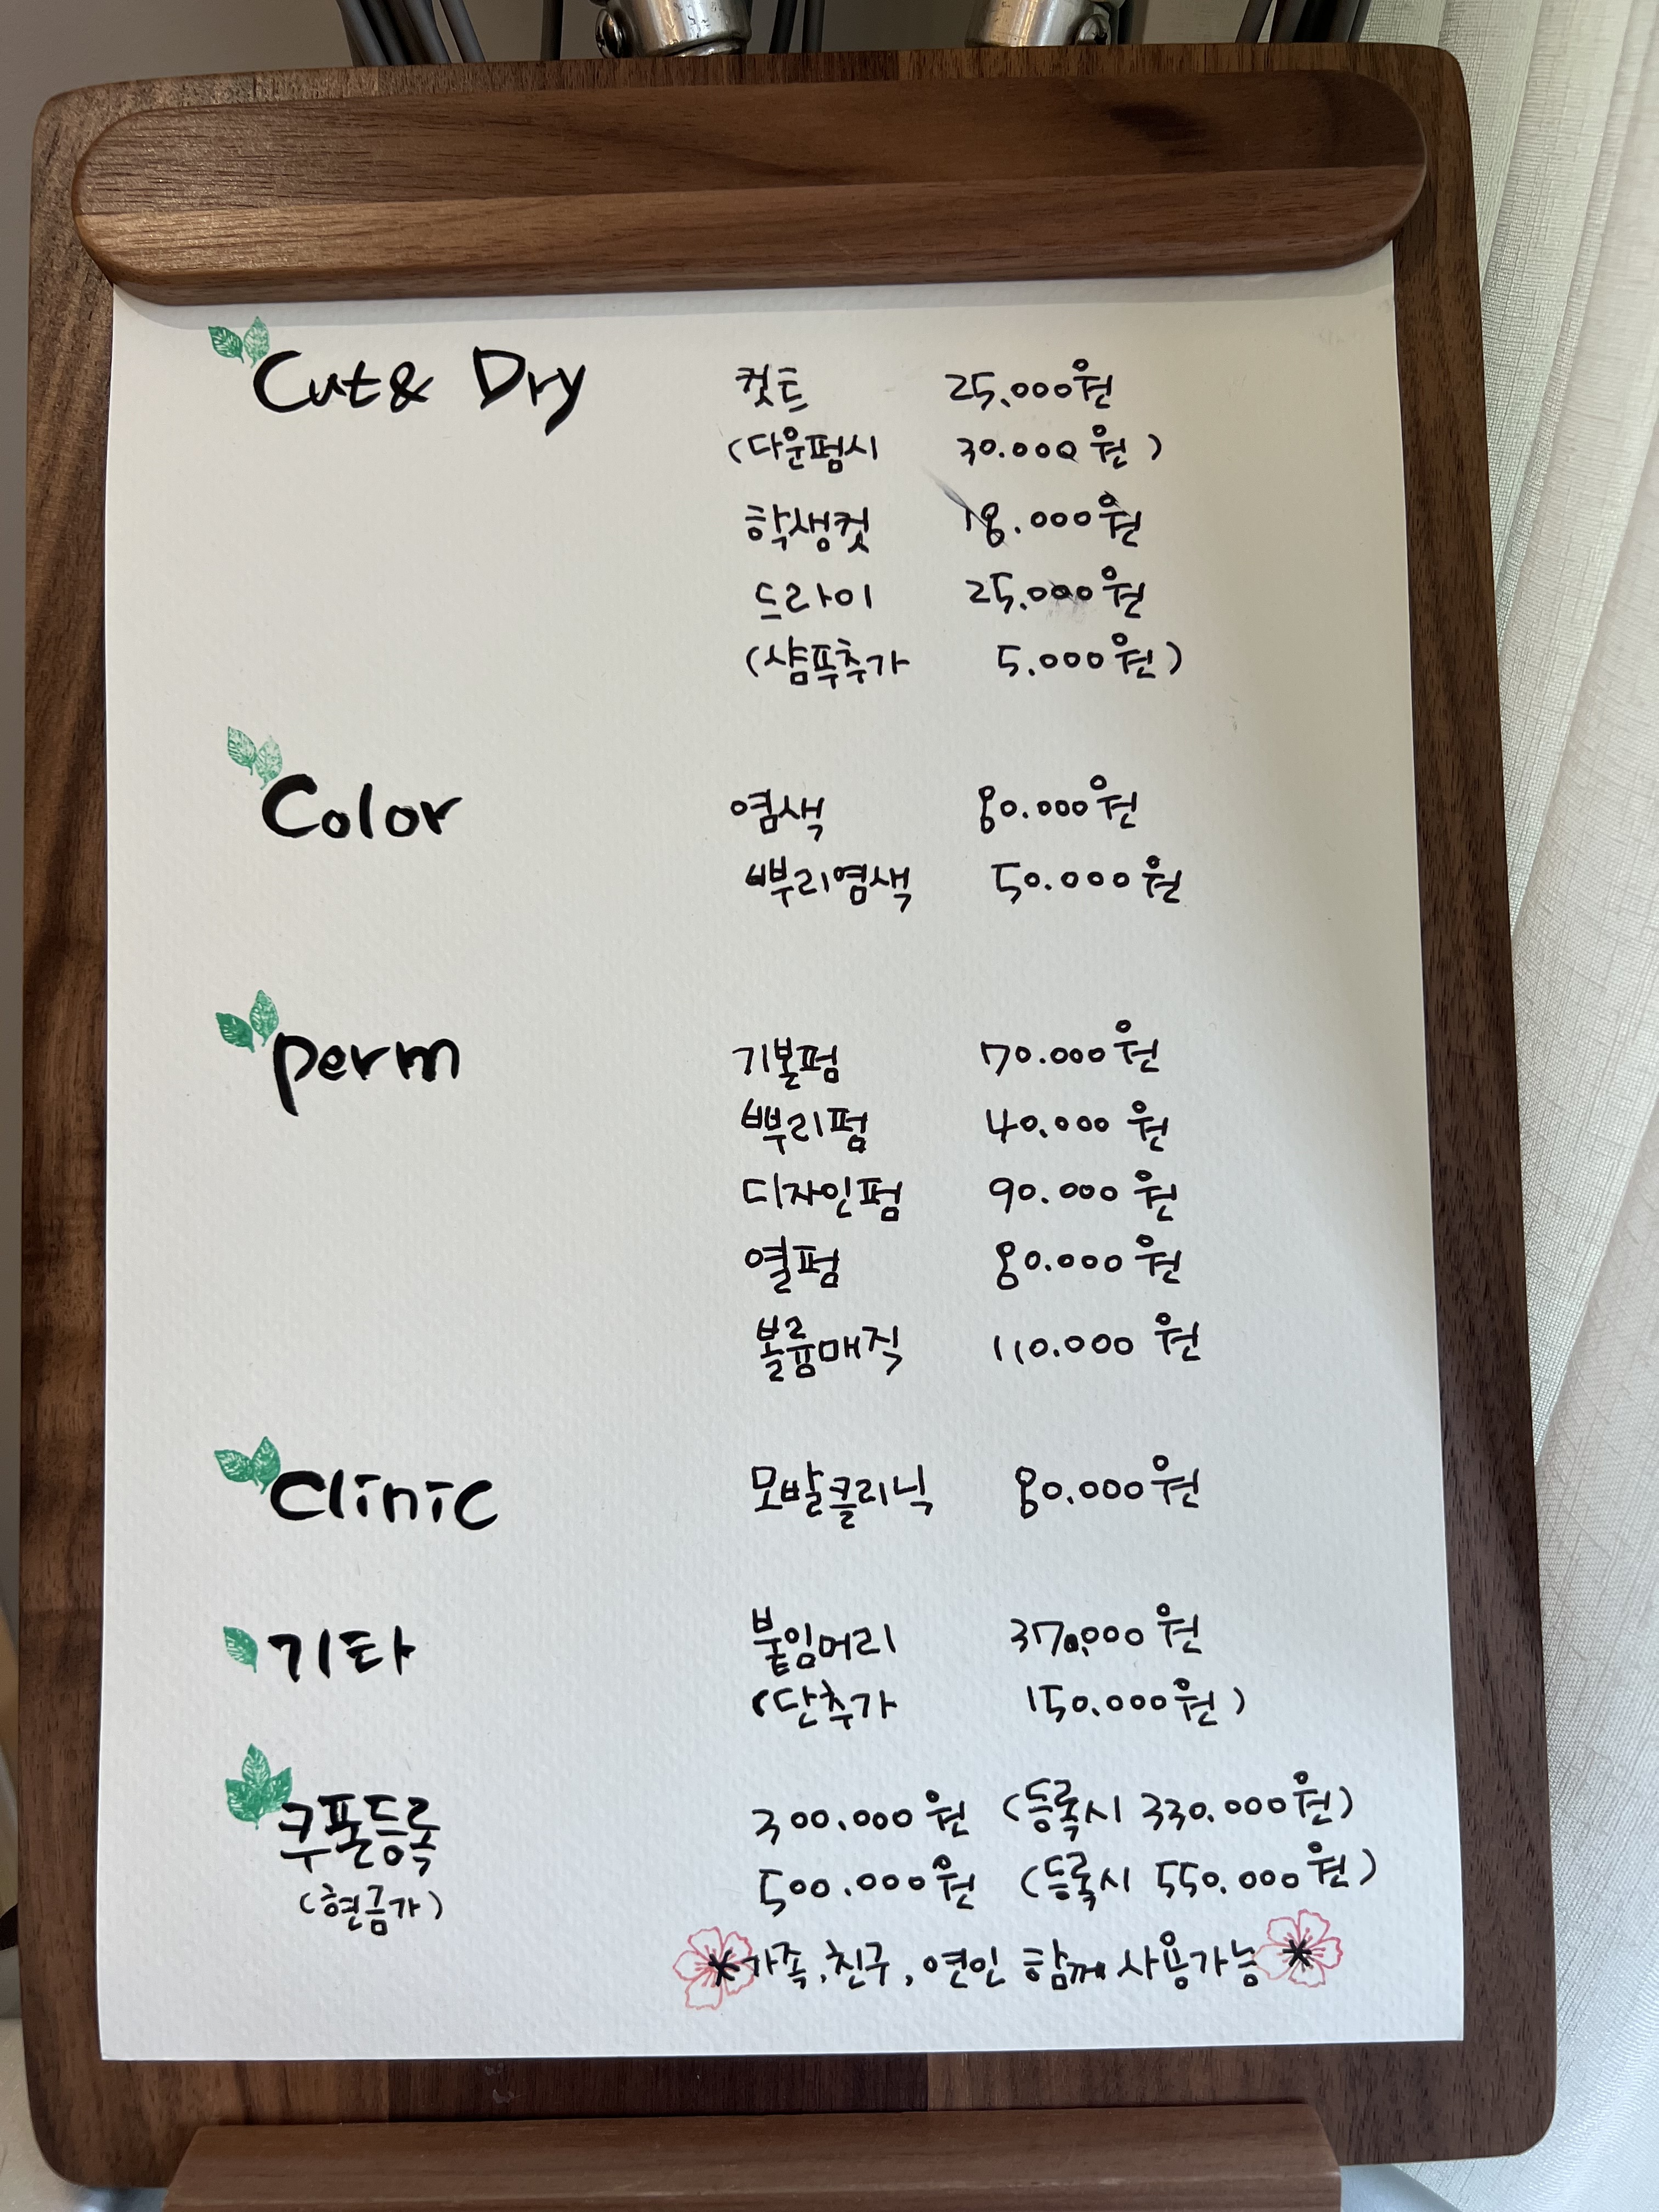 Cut & Dry 컷트 25.000원
(다운펌시 30.000원)
학생컷 18.000원
드라이 25.000원
(샴푸추가 5.000원)
Color 염색 80.000원
뿌리염색 50.000원
perm 기본펌 70.000원
뿌리펌 40.000원
디자인펌 90.000원
열펌 80.000원
볼륨매직 110.000원
Clinic 모발클리닉 80.000원
기타 붙임머리 370.000원
(단추가 150.000원)
쿠폰등록 300.000원 (등록시 330.000원)
(현금가) 500.000원 (등록시 550.000원)
*가족, 친구, 연인 함께 사용가능*